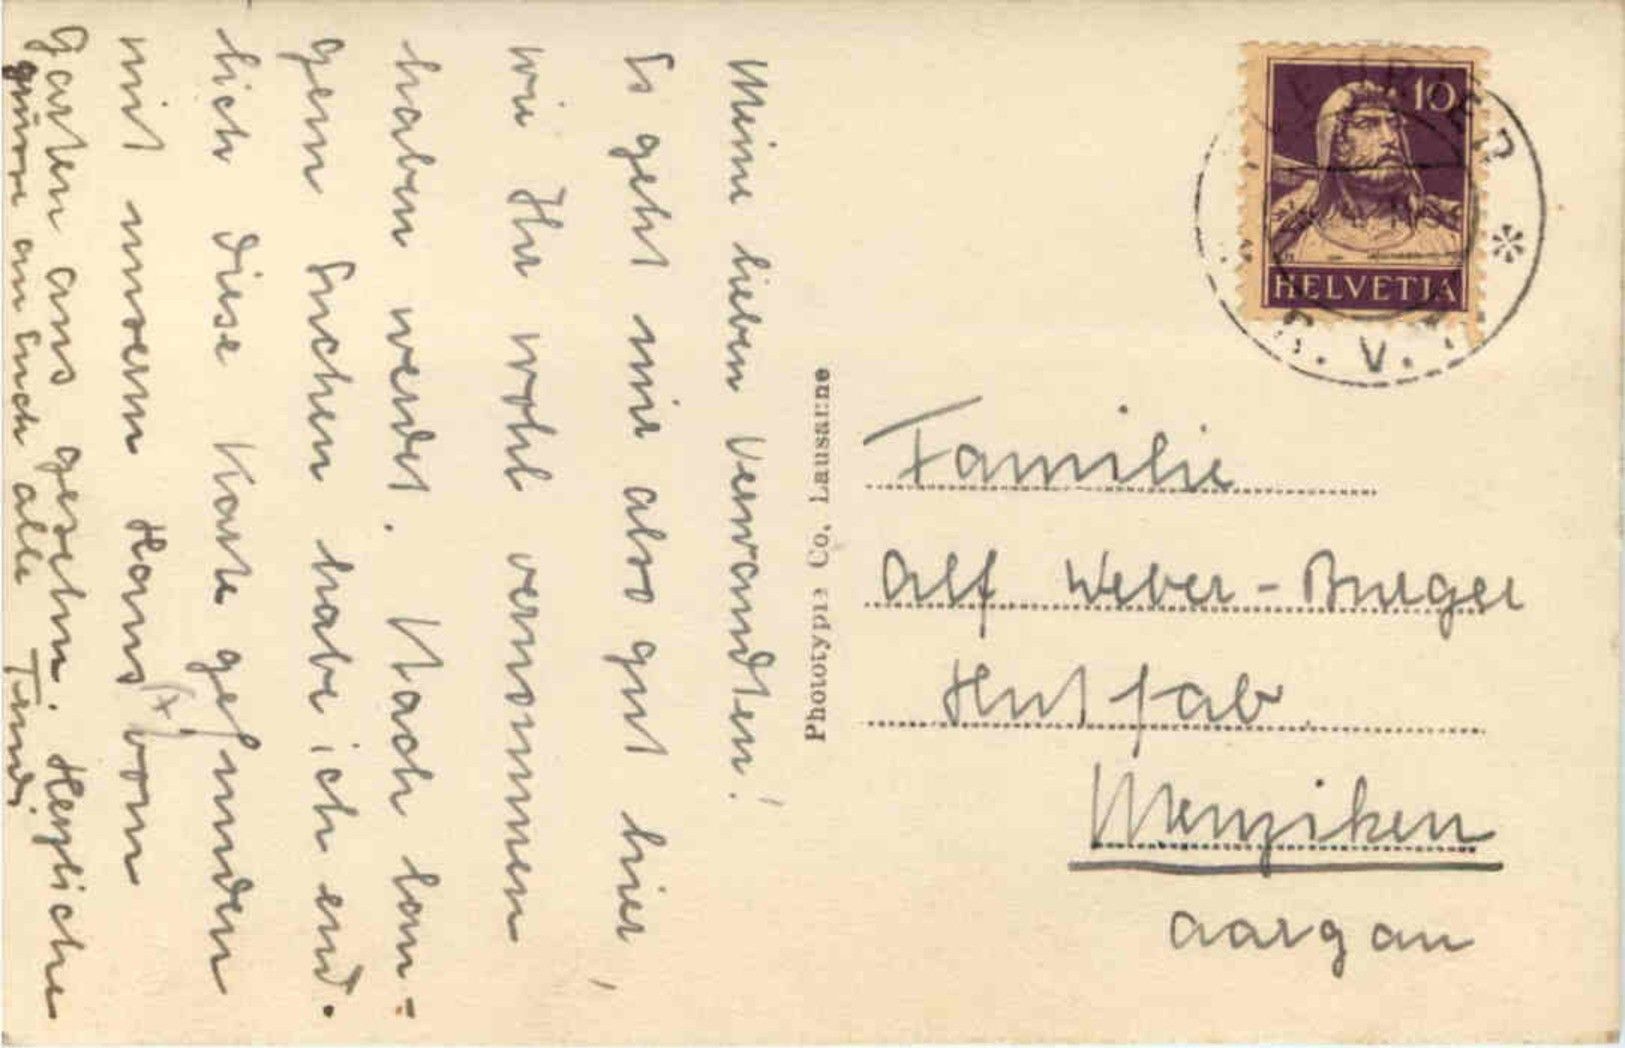 Meine lieben Verwandten!
Es geht mir also gut hier,
wie Ihr wohl vernommen
haben werdet. Nach lan-
gem Suchen habe ich end-
lich diese Karte gefunden
mit unserm Haus (x) vom
Garten aus gesehen. Herzliche
Grüsse an Euch alle
Phototypie Co. Lausanne
10
HELVETIA
V.
Familie
Alf Weber-Burger
Hutfab.
Menziken
Aargau